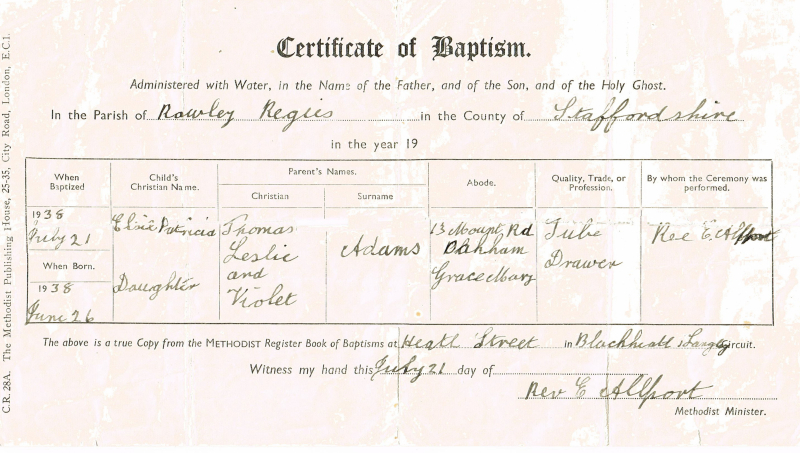 Certificate of Baptism.
Administered with Water, in the Name of the Father, and of the Son, and of the Holy Ghost.
In the Parish of Rowley Regis in the County of Staffordshire
in the year 19
When Baptized
Child's Christian Name.
Parent's Names.
Christian
Surname
Abode.
Quality, Trade, or Profession.
By whom the Ceremony was performed.
1938
July 21
When Born.
1938
June 26
Elsie Patricia
Daughter
Thomas
Leslie
and
Violet
Adams
13 Mount Rd
Oakham
Grace Mary
Tube
Drawer
Rev E Allport
The above is a true Copy from the METHODIST Register Book of Baptisms at Heath Street in Blackheath & Langley Circuit.
Witness my hand this July 21 day of
Rev E Allport
Methodist Minister.
C.R. 28A. The Methodist Publishing House, 25-35, City Road, London, E.C.1.